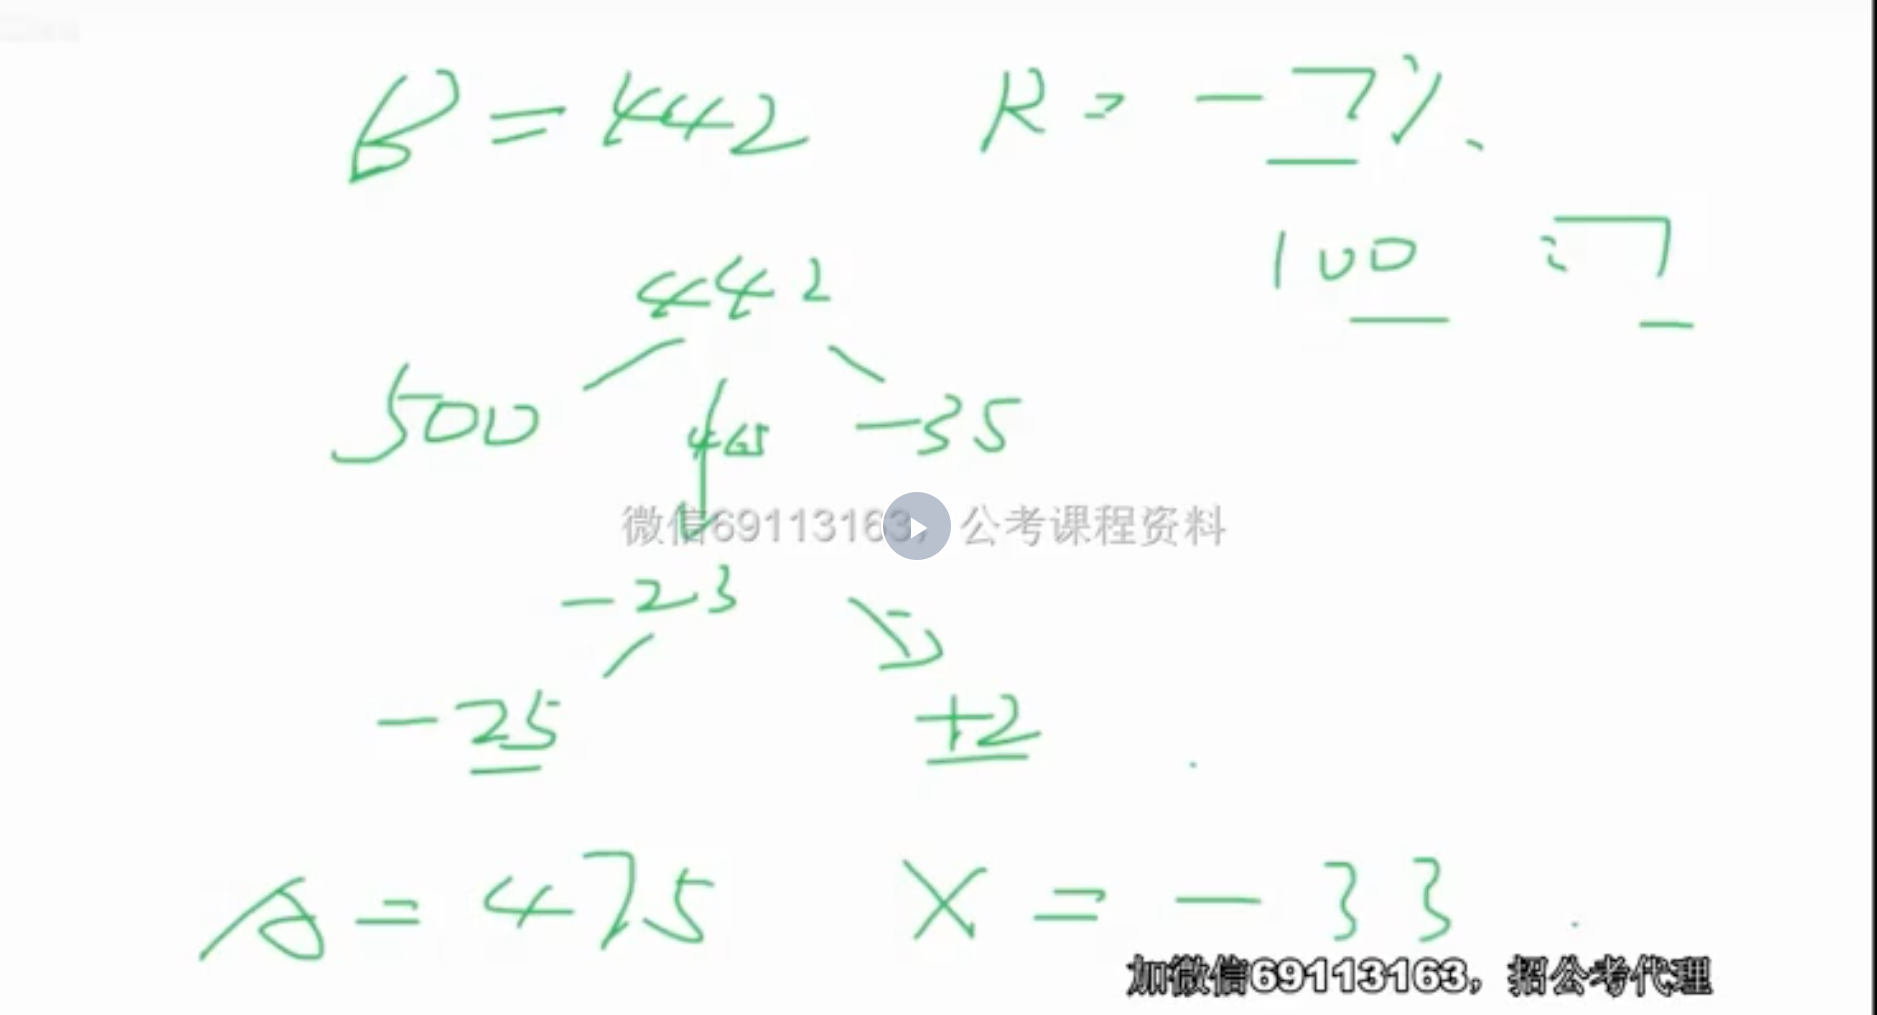 B = 442 R = -7%.
100 : 7
442
500 465 -35
微信69113163，公考课程资料
-23
-25 +2
A = 475 X = -33
加微信69113163，招公考代理